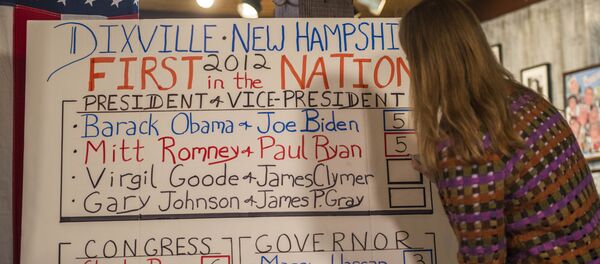 DIXVILLE · NEW HAMPSHI
FIRST 2012 in the NATION
PRESIDENT & VICE-PRESIDENT
· Barack Obama & Joe Biden 5
· Mitt Romney & Paul Ryan 5
· Virgil Goode & James Clymer
· Gary Johnson & James P. Gray
CONGRESS GOVERNOR
Hassan 3